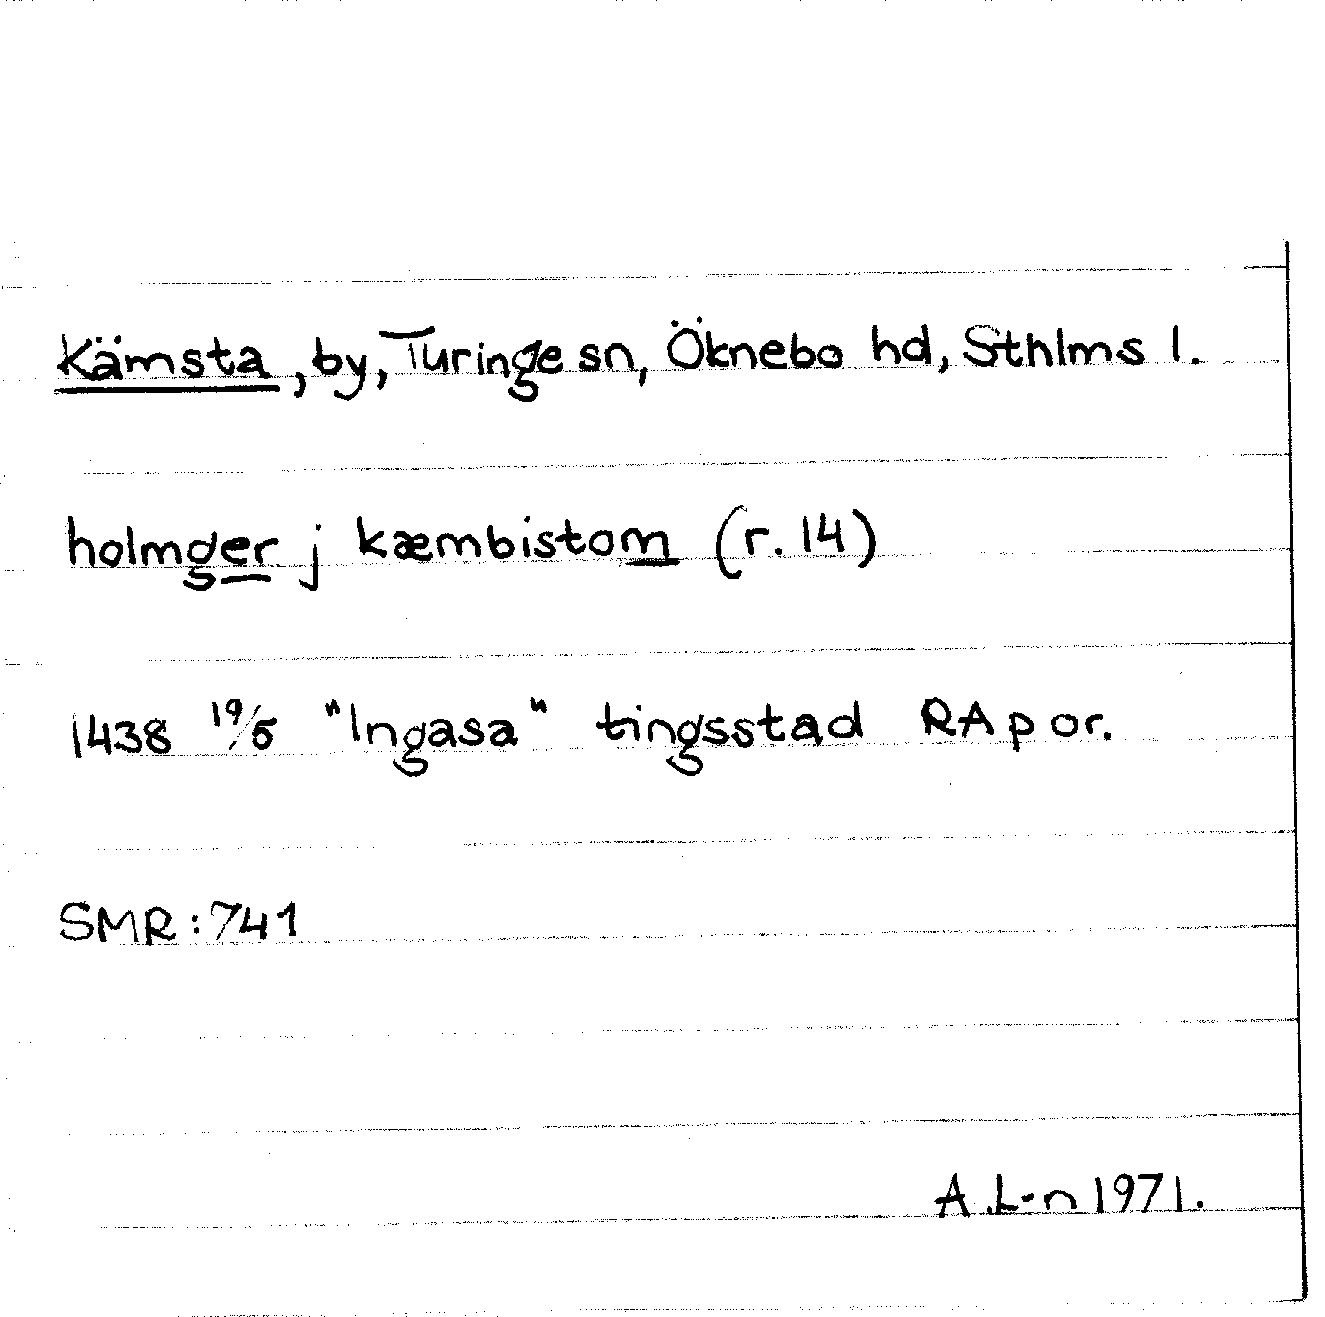 Kämsta, by, Turinge sn, Öknebo hd, Sthlms l.
holmger j kæmbistom (r. 14)
1438 19/5 "Ingasa" tingsstad RAp or.
SMR: 741
A.L-n 1971.